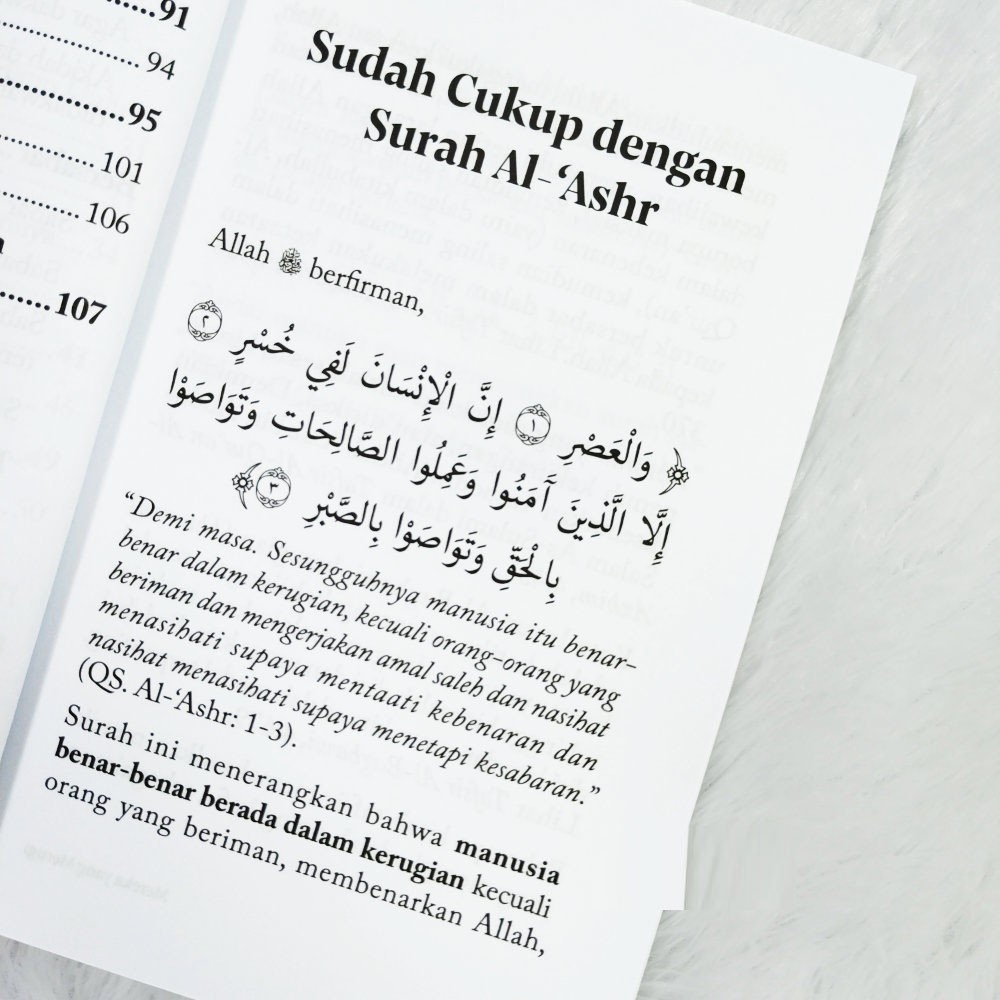 91
94
95
101
106
107
Sudah Cukup dengan
Surah Al-‘Ashr
Allah ﷻ berfirman,
﴿ وَالْعَصْرِ ١ إِنَّ الْإِنْسَانَ لَفِي خُسْرٍ ٢
إِلَّا الَّذِينَ آمَنُوا وَعَمِلُوا الصَّالِحَاتِ وَتَوَاصَوْا
بِالْحَقِّ وَتَوَاصَوْا بِالصَّبْرِ ٣ ﴾
“Demi masa. Sesungguhnya manusia itu benar-
benar dalam kerugian, kecuali orang-orang yang
beriman dan mengerjakan amal saleh dan nasihat
menasihati supaya mentaati kebenaran dan
nasihat menasihati supaya menetapi kesabaran.”
(QS. Al-‘Ashr: 1-3).
Surah ini menerangkan bahwa manusia
benar-benar berada dalam kerugian kecuali
orang yang beriman, membenarkan Allah,